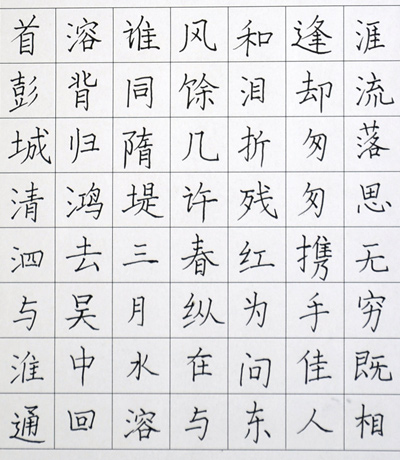 涯流落思无穷既相
逢却匆匆携手佳人
和泪折残红为问东
风馀几许春纵在与
谁同隋堤三月水溶
溶背归鸿去吴中回
首彭城清泗与淮通